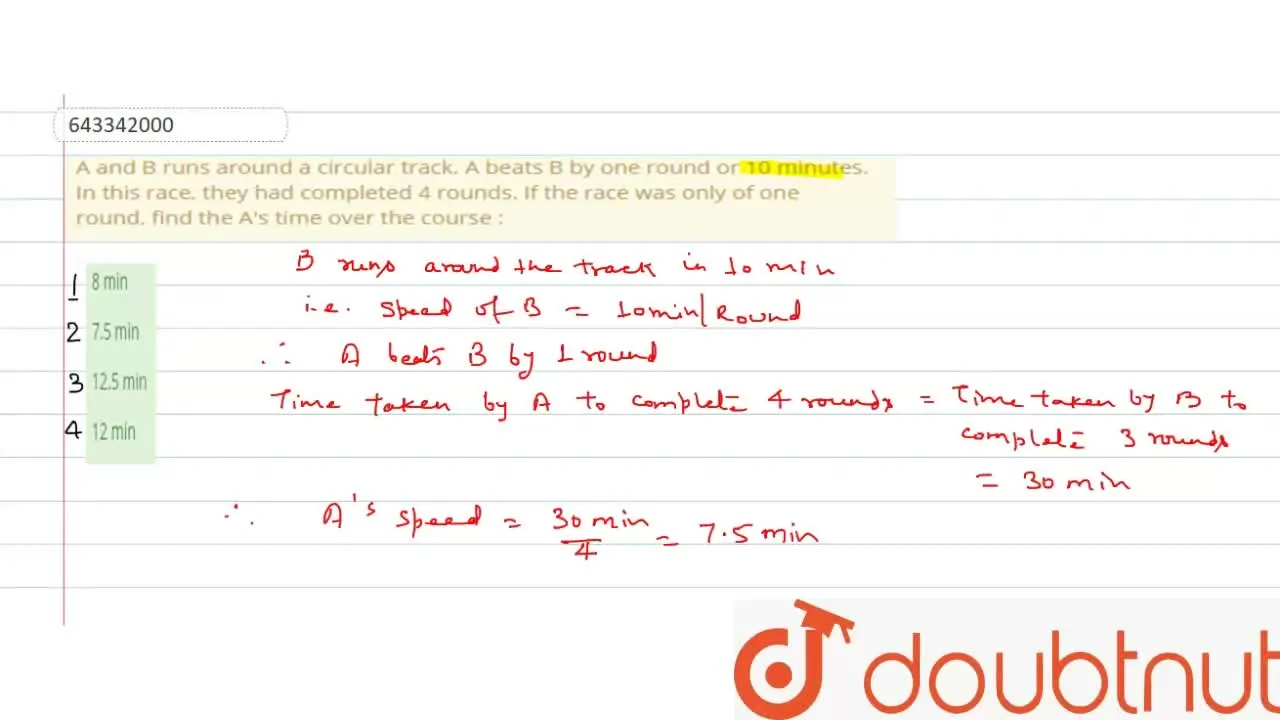 643342000
A and B runs around a circular track. A beats B by one round or 10 minutes.
In this race. they had completed 4 rounds. If the race was only of one
round. find the A's time over the course :
1 8 min
2 7.5 min
3 12.5 min
4 12 min
B runs around the track in 10 min
i.e. speed of B = 10min/Round
∴ A beats B by 1 round
Time taken by A to complete 4 rounds = Time taken by B to
complete 3 rounds
= 30 min
∴ A's speed = 30 min/4 = 7.5 min
doubtnut